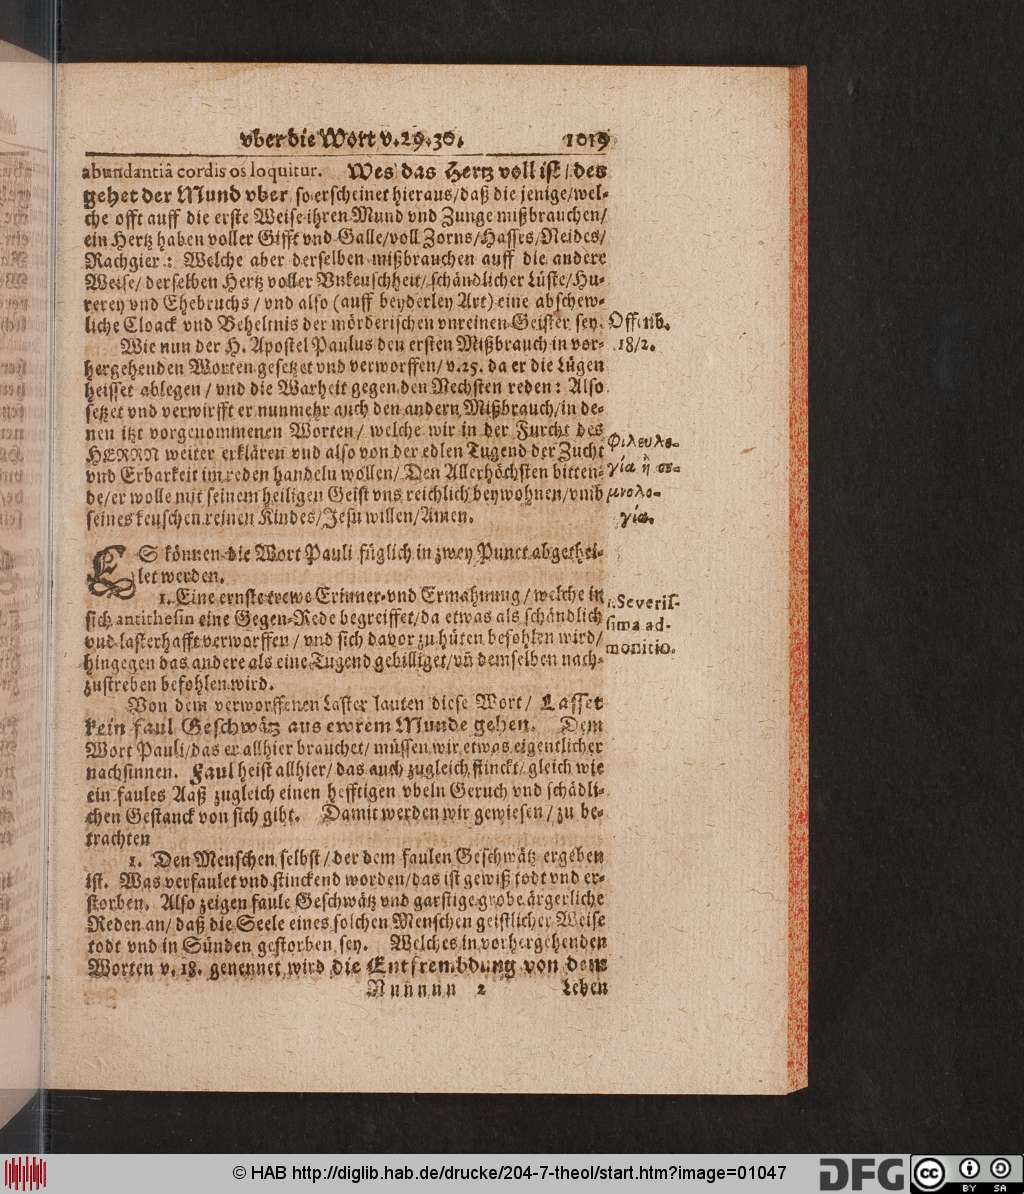 vber die Wort v.29.30. 1019
abundantiâ cordis os loquitur. Wes das Hertz voll ist / des
gehet der Mund vber, so erscheinet hieraus/daß die jenige/wel-
che offt auff die erste Weise ihren Mund vnd Zunge mißbrauchen/
ein Hertz haben voller Gifft vnd Galle/voll Zorns/Hasses/Neides/
Rachgier: Welche aber derselben mißbrauchen auff die andere
Weise/ derselben Hertz voller Vnkeuschheit/ schändlicher Lüste/Hu-
rerey vnd Ehebruchs / vnd also (auff beyderley Art) eine abschew-
liche Cloack vnd Beheltnis der mörderischen vnreinen Geister sey.
Offenb.
18/2.
Wie nun der H. Apostel Paulus den ersten Mißbrauch in vor-
hergehenden Worten gesetzet vnd verworffen/ v.25. da er die Lügen
heisset ablegen / vnd die Warheit gegen den Nechsten reden: Also
setzet vnd verwirfft er nunmehr auch den andern Mißbrauch/in de-
nen itzt vorgenommenen Worten/ welche wir in der Furcht des
HERRN weiter erklären vnd also von der edlen Tugend der Zucht
vnd Erbarkeit im reden handeln wollen/ Den Allerhöchsten bitten-
de/er wolle mit seinem heiligen Geist vns reichlich beywohnen/vmb
seines keuschen reinen Kindes/Jesu willen/Amen.
γία ἢ σε-
μνολο-
γία.
ES können die Wort Pauli füglich in zwey Punct abgethei-
let werden.
1. Eine ernste trewe Erinner-vnd Ermahnung / welche in
sich antithesin eine Gegen-Rede begreiffet/da etwas als schändlich
vnd lasterhafft verworffen / vnd sich davor zu hüten befohlen wird/
hingegen das andere als eine Tugend gebilliget/vñ demselben nach-
zustreben befohlen wird.
1. Severis-
sima ad-
monitio.
Von dem verworffenen Laster lauten diese Wort/ Lasset
kein faul Geschwätz aus ewrem Munde gehen. Dem
Wort Pauli/das er allhier brauchet/ müssen wir etwas eigentlicher
nachsinnen. Faul heist allhier/ das auch zugleich stinckt/ gleich wie
ein faules Aaß zugleich einen hefftigen vbeln Geruch vnd schädli-
chen Gestanck von sich gibt. Damit werden wir gewiesen / zu be-
trachten
1. Den Menschen selbst/ der dem faulen Geschwätz ergeben
ist. Was verfaulet vnd stinckend worden/das ist gewiß todt vnd er-
storben. Also zeigen faule Geschwätz vnd garstige grobe ärgerliche
Reden an/ daß die Seele eines solchen Menschen geistlicher Weise
todt vnd in Sünden gestorben sey. Welches in vorhergehenden
Worten v. 18. genennet wird die Entfrembdung von dem
Nnnnnn 2 Leben
© HAB http://diglib.hab.de/drucke/204-7-theol/start.htm?image=01047
DFG
cc
BY SA